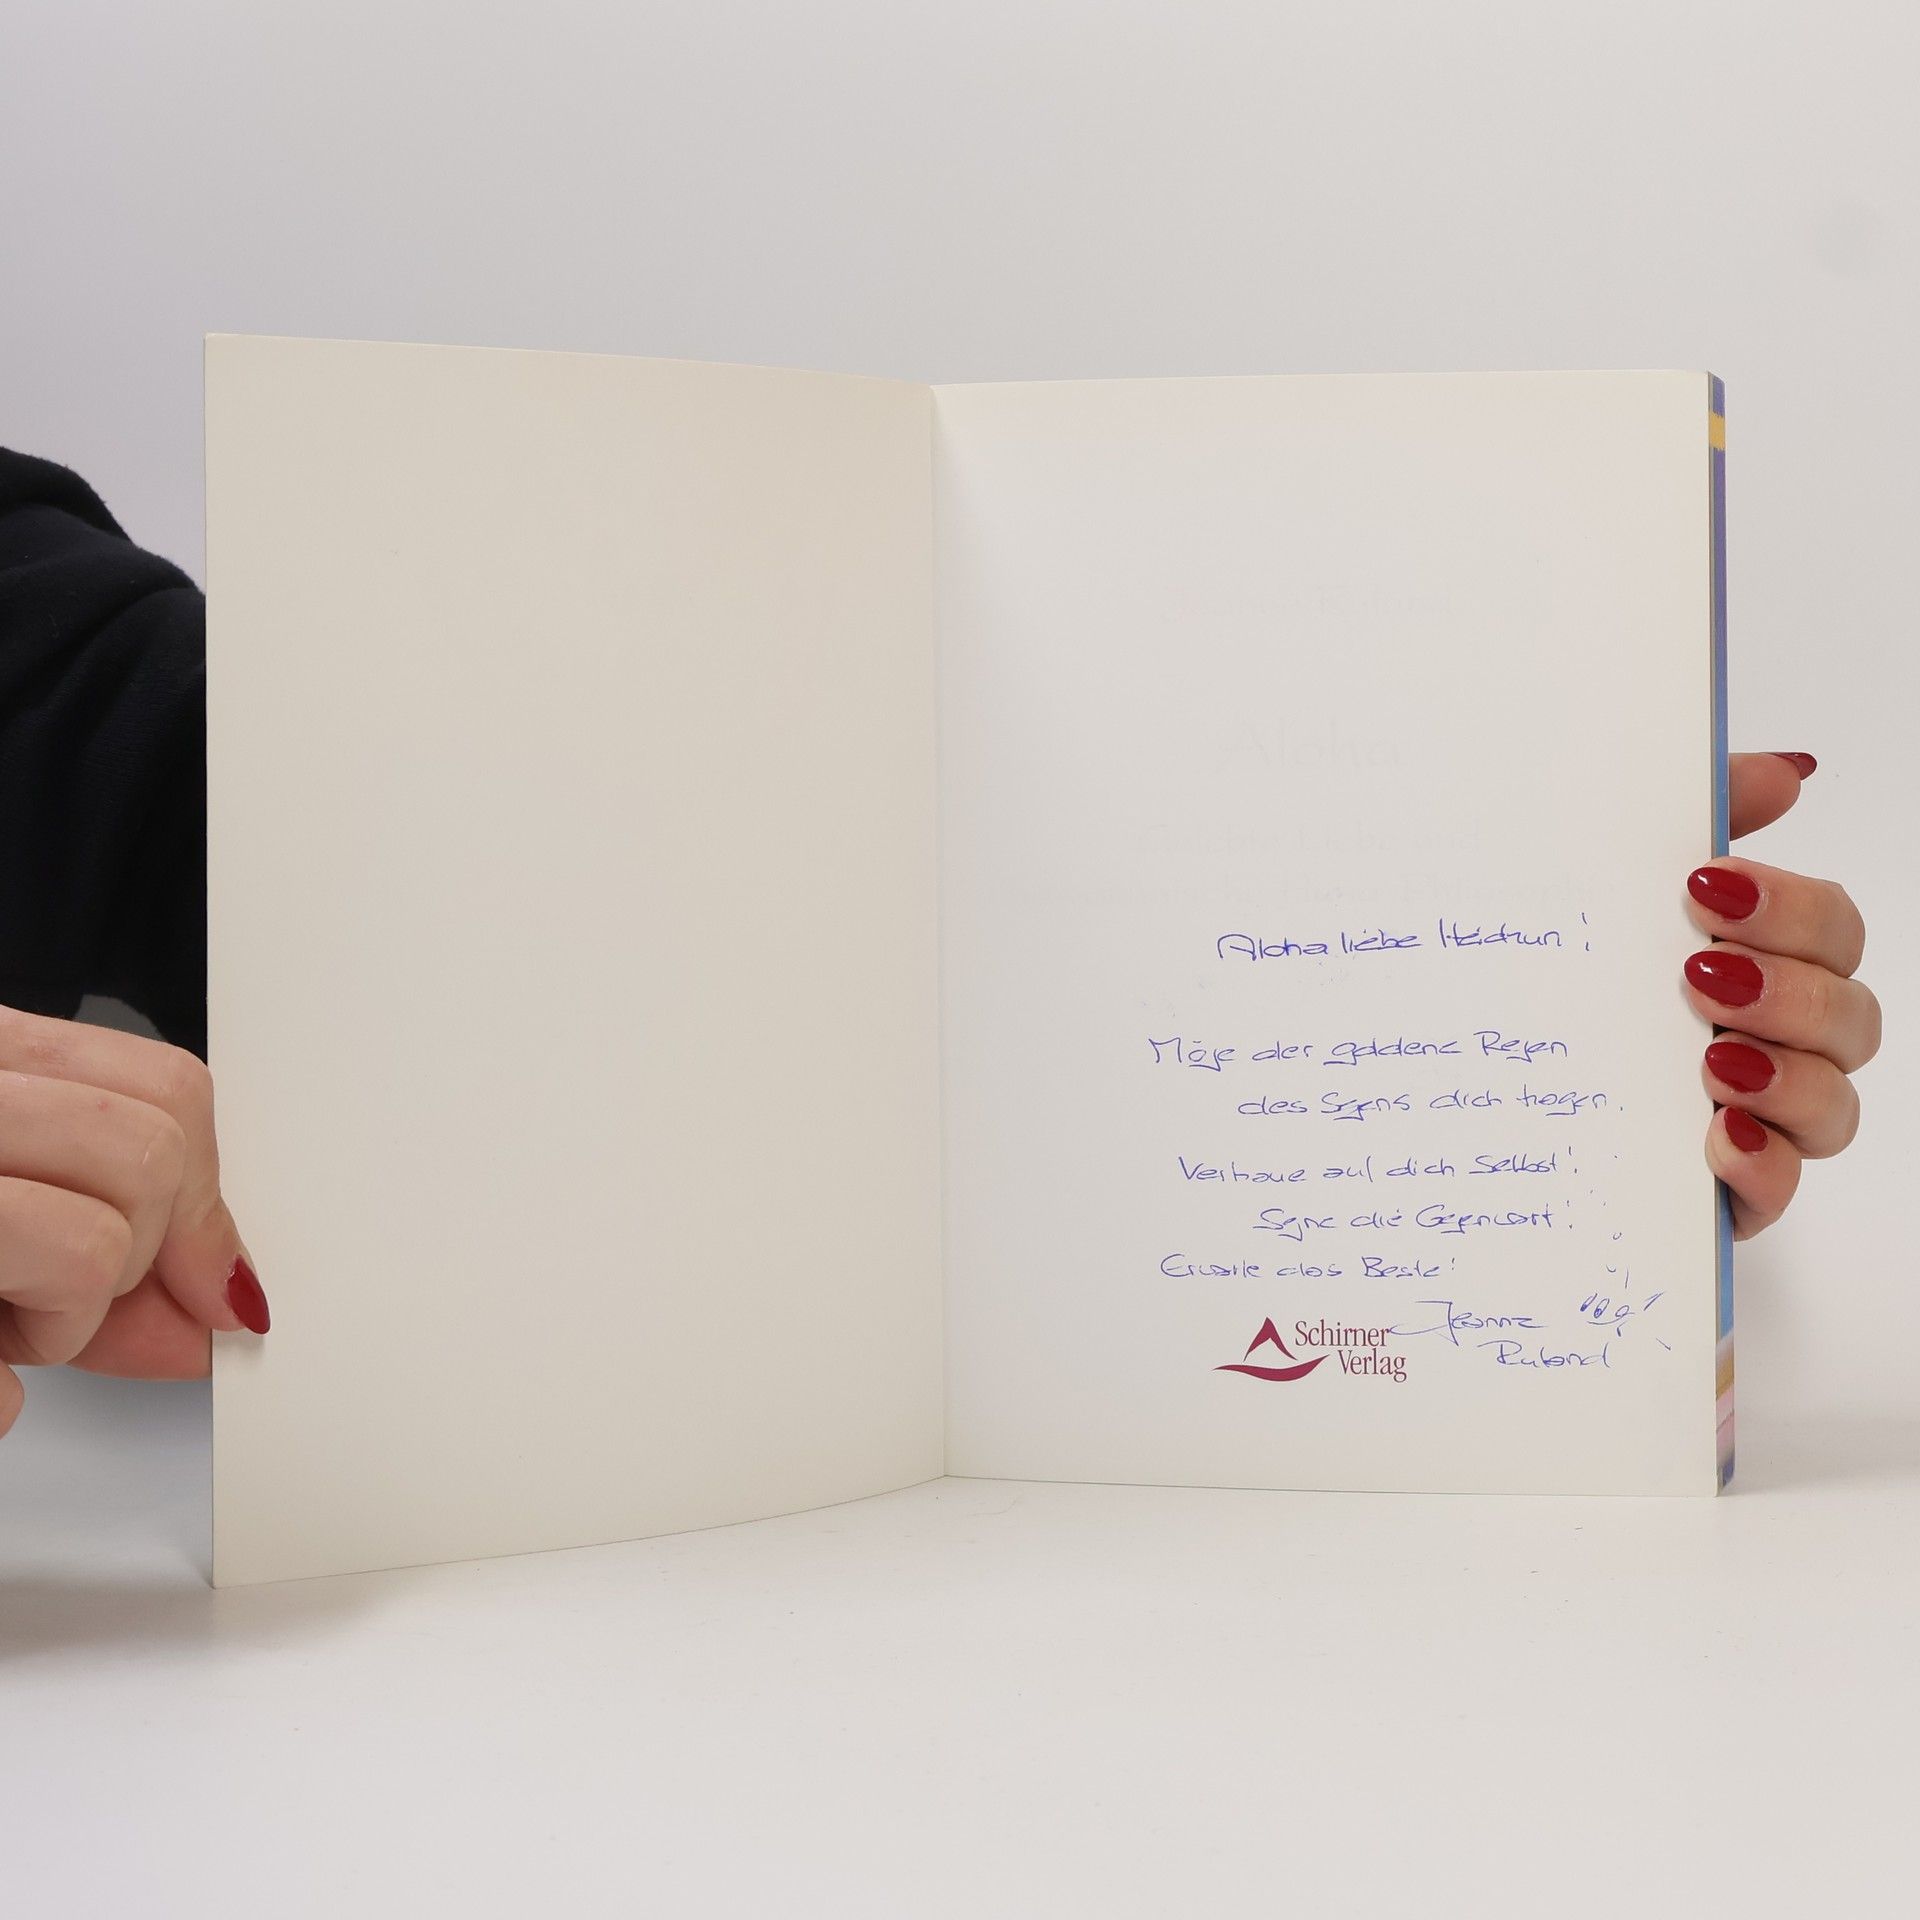 Aloha liebe Heidrun!
Möge der goldene Regen
des Segens dich tragen.
Vertraue auf dich Selbst!
Segne die Gegenwart!
Erwarte das Beste!
Jeanne
Ruland
Schirner
Verlag